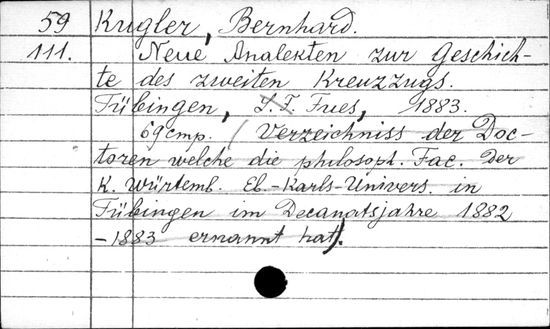 59 Kugler, Bernhard.
111. Neue Analekten zur Geschich-
te des zweiten Kreuzzugs.
Tübingen, L. F. Fues, 1883.
69 стр. (Verzeichniss der Doc-
toren welche die philosoph. Fac. der
K. Würtemb. Eb.-Karls-Univers. in
Tübingen im Decanatsjahre 1882
-1883 ernannt hat).